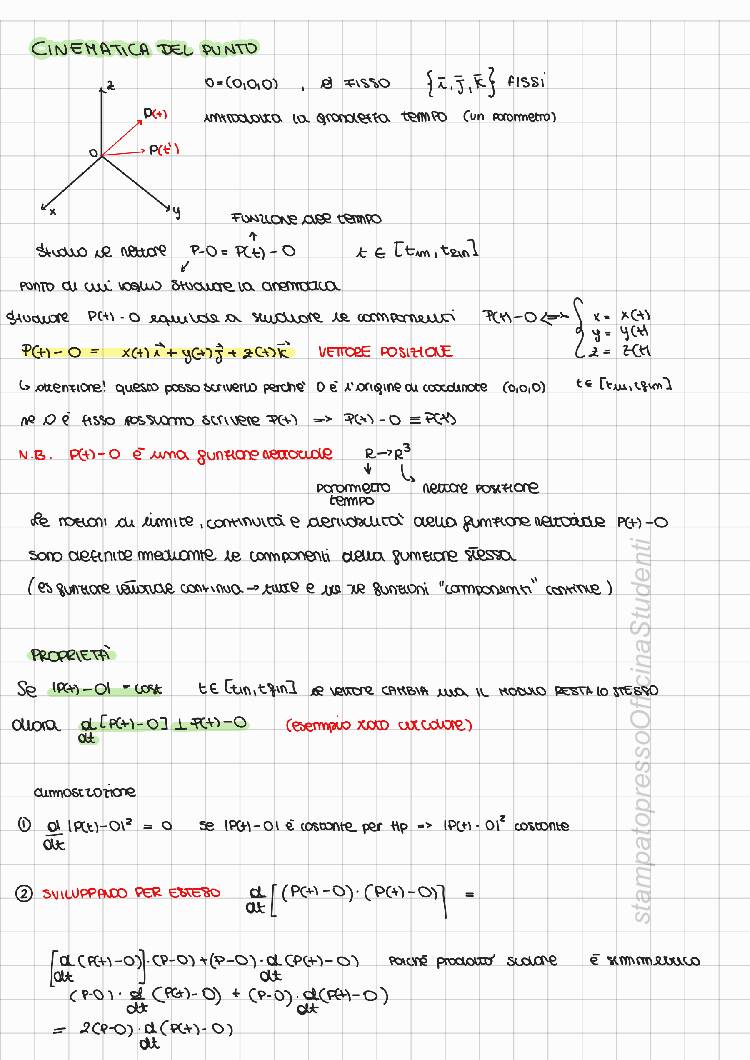 CINEMATICA DEL PUNTO
O=(0,0,0) , è FISSO {i̅, j̅, k̅} FISSI
introdotta la grandezza tempo (un parametro)
z
P(t)
P(t')
O
x
y
FUNZIONE del tempo
↑
studio il vettore P-O = P(t) - O t ∈ [tin, tfin]
↙
punto di cui voglio studiare la cinematica
studiare P(t)-O equivale a studiare le componenti P(t)-O <=> { x = x(t)
y = y(t)
z = z(t)
P(t) - O = x(t) i⃗ + y(t) j⃗ + z(t) k⃗ VETTORE POSIZIONE
↳ attenzione! questo posso scriverlo perché O è l'origine di coordinate (0,0,0) t ∈ [tin, tfin]
se O è fisso possiamo scrivere P(t) => P(t) - O ≡ P(t)
N.B. P(t)-O è una funzione vettoriale R → R³
parametro tempo
vettore posizione
Le nozioni di limite, continuità e derivabilità della funzione vettoriale P(t)-O
sono definite mediante le componenti della funzione stessa
(es funzione vettoriale continua → tutte e tre le funzioni "componenti" continue)
PROPRIETÀ
Se |P(t)-O| = cost t ∈ [tin, tfin] il vettore CAMBIA ma IL MODULO RESTA LO STESSO
allora d/dt [P(t)-O] ⊥ P(t)-O (esempio moto circolare)
dimostrazione
① d/dt |P(t)-O|² = 0 se |P(t)-O| è costante per Hp => |P(t)-O|² costante
② SVILUPPANDO PER ESTESO d/dt [(P(t)-O)·(P(t)-O)] =
[d/dt (P(t)-O)]·(P-O) + (P-O)·d/dt (P(t)-O) Poiché prodotto scalare è simmetrico
(P-O)·d/dt (P(t)-O) + (P-O)·d/dt (P(t)-O)
= 2(P-O)·d/dt (P(t)-O)
stampatopressoOfficinaStudenti